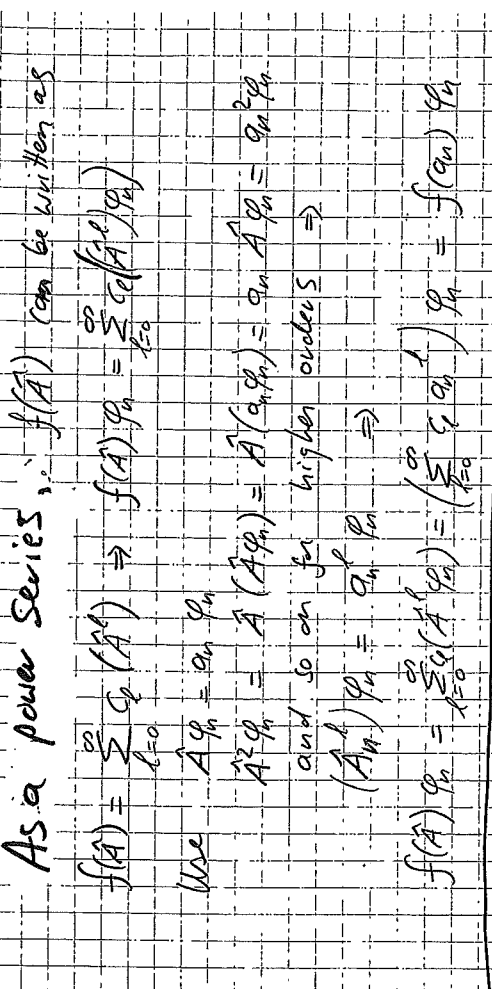 As a power series, f(Â) can be written as
f(Â) = ∑_{l=0}^{∞} c_l (Â^l) ⇒ f(Â) φ_n = ∑_{l=0}^{∞} c_l((Â^l)φ_n)
Use Âφ_n = a_n φ_n
Â²φ_n = Â(Âφ_n) = Â(a_nφ_n) = a_n Âφ_n = a_n²φ_n
and so on for higher orders ⇒
(Â_n^l)φ_n = a_n^l φ_n ⇒
f(Â) φ_n = ∑_{l=0}^{∞} c_l(Â^l φ_n) = (∑_{l=0}^{∞} c_l a_n^l) φ_n = f(a_n) φ_n